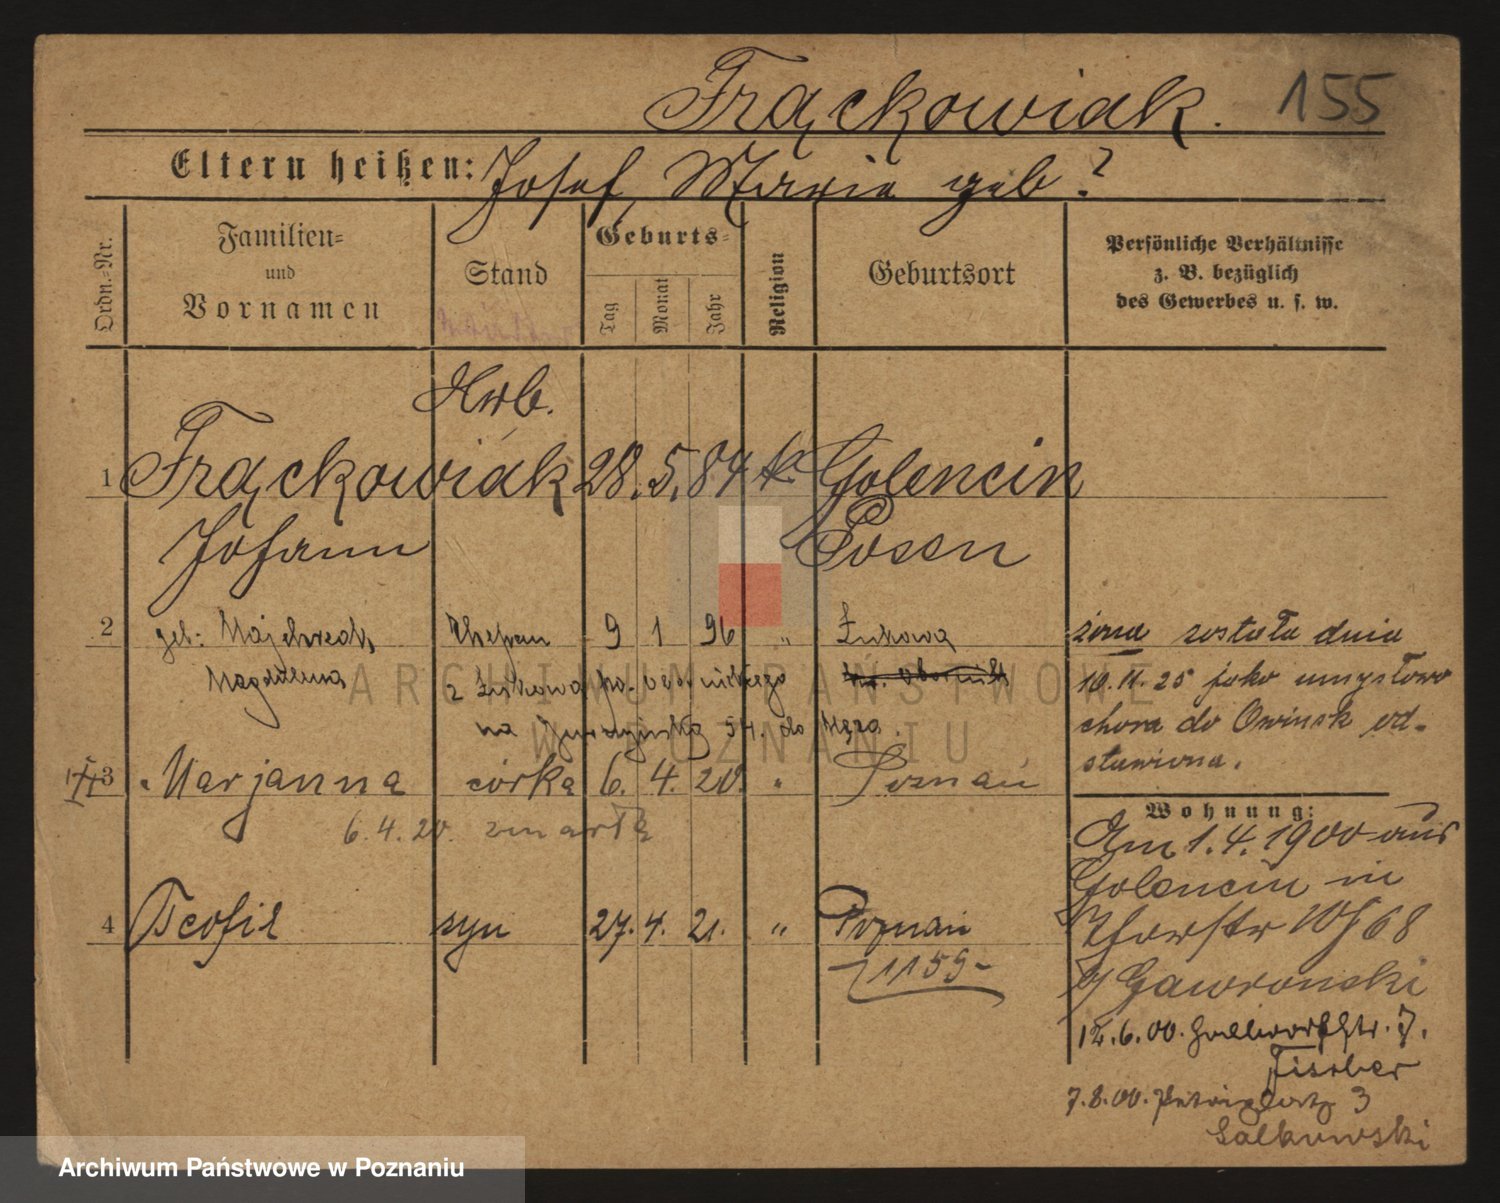 Frąckowiak. 155
Eltern heißen: Josef, Maria geb?
Ordn.-Nr.
Familien- und Vornamen
Stand
Geburts-
Tag
Monat
Jahr
Religion
Geburtsort
Persönliche Verhältnisse
z. B. bezüglich
des Gewerbes u. s. w.
Arb.
1 Frąckowiak 28. 5. 84 k. Golencin
Johann Posen
2 geb: Ehefrau 9 1 96 " Łukowa
Magdalena z Łukowa po. obornickiego
na 54. do męża.
żona została dnia
10.11.25 jako umysłowo
chora do Owinsk od-
stawiona.
3 Marjanna córka 6. 4. 20. " Poznań
6.4.20. zmarła
4 Teofil syn 27. 4. 21. " Poznań
1155-
Wohnung:
Am 1.4.1900 aus
Golencin in
68
b/ Gawronski
12.6.00. 7.
Fischer
7.8.00. 3
Galkowski
ARCHIWUM PAŃSTWOWE
W POZNANIU
Archiwum Państwowe w Poznaniu